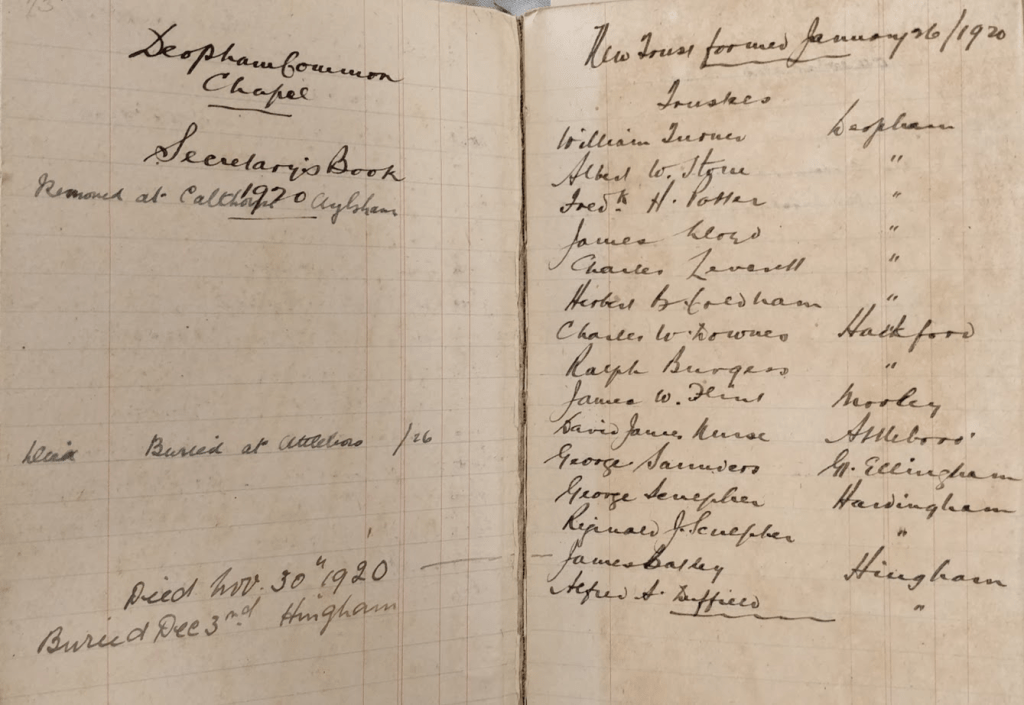 Deopham Common
Chapel
Secretary's Book
1920
Removed at Calthorpe Aylsham
Died Buried at Attleboro /26
Died Nov. 30" 1920
Buried Dec 3rd Hingham
New Trust formed January 26/1920
Trustees
William Turner Deopham
Albert W. Stone "
Fredk H. Potter "
James Lloyd "
Charles Leverett "
Herbert B. Coldham "
Charles W. Downes Hackford
Ralph Burgess "
James W. Flint Morley
David James Nurse Attleboro'
George Saunders Gt. Ellingham
George Sculpher Hardingham
Reginald J. Sculpher "
James Bailey Hingham
Alfred A. Duffield "